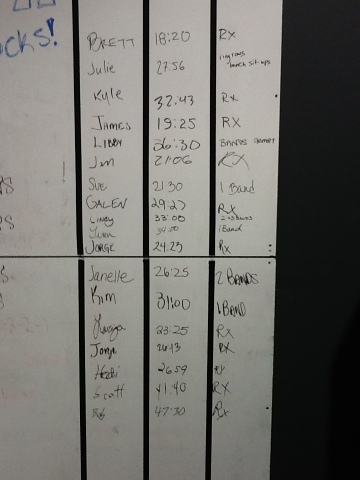 ocks!
BRETT 18:20 Rx
Julie 27:56 ring rows bench sit-ups
Kyle 32:43 Rx
JAMES 19:25 RX
LIBBY 36:30 BANDS
Jim 21:06 RX
Sue 21:30 1 Band
GALEN 29:27 Rx
CINDY 33:00 2
1 Band
JORGE 24:23 Rx
Janelle 26:25 2 BANDS
Kim 31:00 1 BAND
23:25 Rx
26:13 RX
Heidi 26:59 RX
Scott 41:40 RX
47:30 Rx